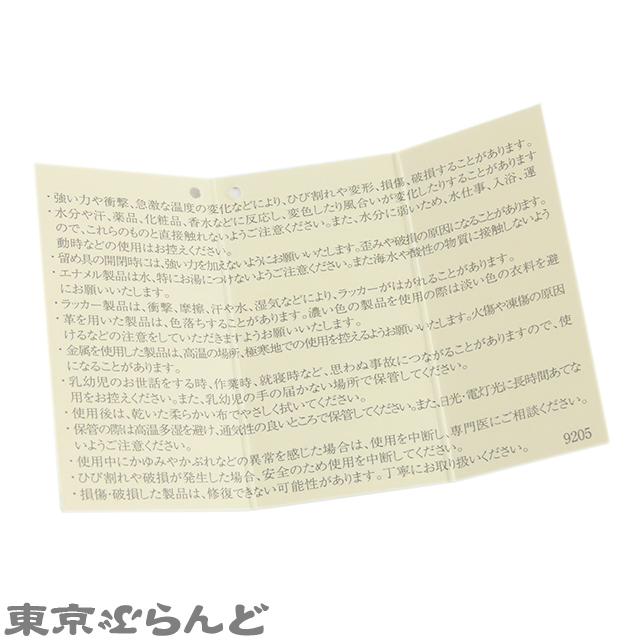 ・強い力や衝撃、急激な温度の変化などにより、ひび割れや変形、損傷、破損することがあります。
・水分や汗、薬品、化粧品、香水などに反応し、変色したり風合いが変化したりすることがあります
ので、これらのものと直接触れないようご注意ください。また、水分に弱いため、水仕事、入浴、運
動時などの使用はお控えください。
・留め具の開閉時には、強い力を加えないようにお願いいたします。歪みや破損の原因になることがあります。
・エナメル製品は水、特にお湯につけないようご注意ください。また海水や酸性の物質に接触しないよう
にお願いいたします。
・ラッカー製品は、衝撃、摩擦、汗や水、湿気などにより、ラッカーがはがれることがあります。
・革を用いた製品は、色落ちすることがあります。濃い色の製品を使用の際は淡い色の衣料を避
けるなどの注意をしていただきますようお願いいたします。
・金属を使用した製品は、高温の場所、極寒地での使用を控えるようお願いいたします。火傷や凍傷の原因
になることがあります。
・乳幼児のお世話をする時、作業時、就寝時など、思わぬ事故につながることがありますので、使
用をお控えください。また、乳幼児の手の届かない場所で保管してください。
・使用後は、乾いた柔らかい布でやさしく拭いてください。
・保管の際は高温多湿を避け、通気性の良いところで保管してください。また、日光・電灯光に長時間あてな
いようご注意ください。
・使用中にかゆみやかぶれなどの異常を感じた場合は、使用を中断し、専門医にご相談ください。
・ひび割れや破損が発生した場合、安全のため使用を中断してください。
・損傷・破損した製品は、修復できない可能性があります。丁寧にお取り扱いください。
9205
東京ぶらんど